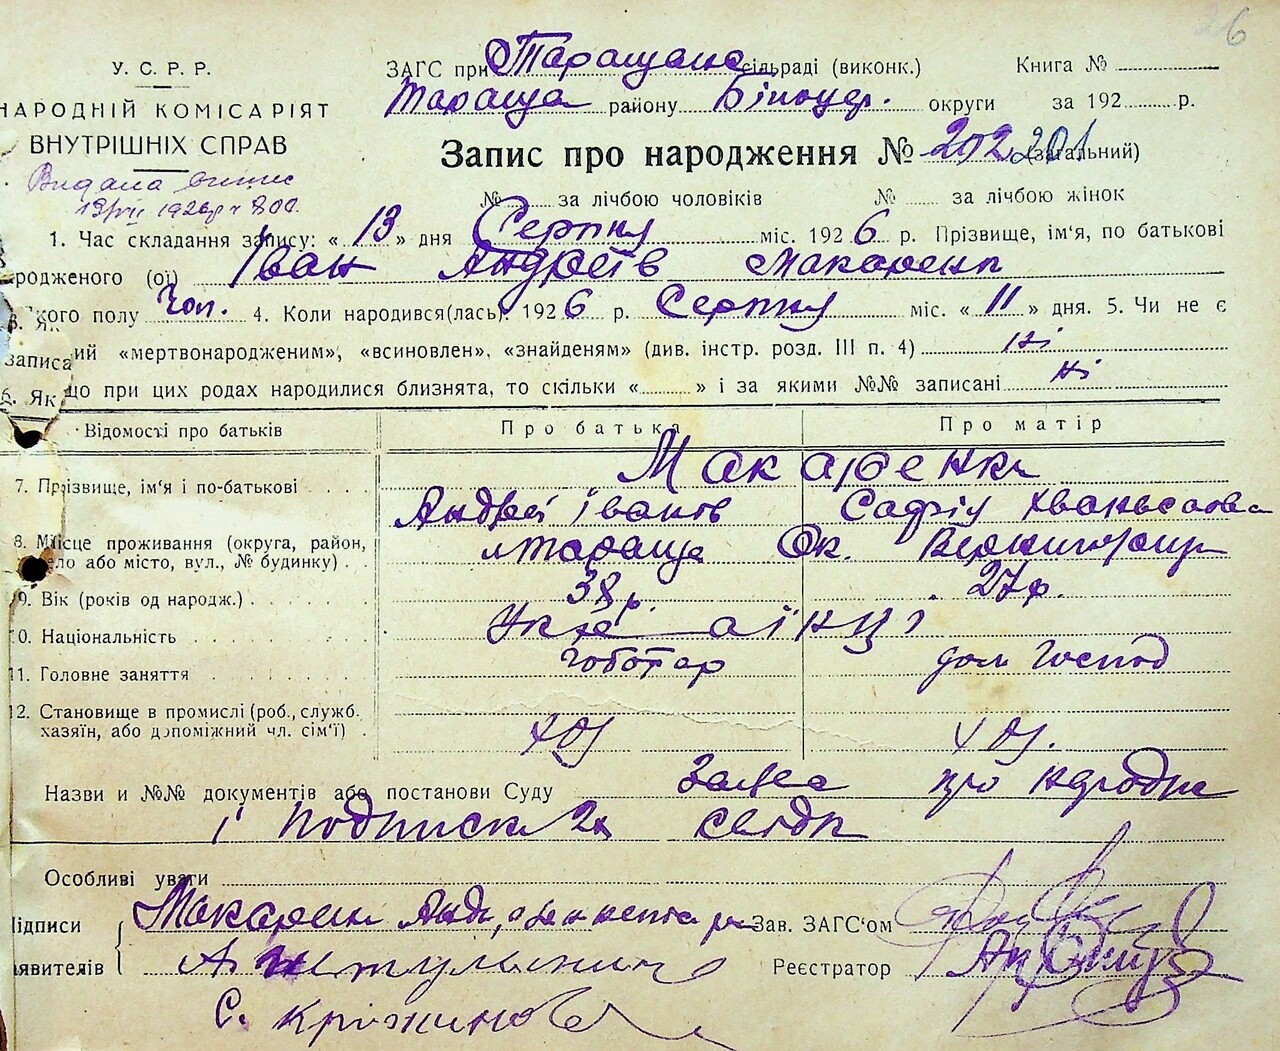 26
У. С. Р. Р.
НАРОДНІЙ КОМІСАРІЯТ
ВНУТРІШНІХ СПРАВ
Видана випис
13/VII 1926 р ч 800.
ЗАГС при Таращанс сільраді (виконк.) Книга №
Тараща району Білоцер. округи за 192 р.
Запис про народження № 202 201 (загальний)
№ за лічбою чоловіків № за лічбою жінок
1. Час складання запису: « 13 » дня Серпня міс. 1926 р. Прізвище, ім'я, по батькові
родженого (ої) Іван Андреїв Макаренк
3. Як кого полу Чол. 4. Коли народився(лась): 1926 р. Серпня міс. « 11 » дня. 5. Чи не є
записаний «мертвонародженим», «всиновлен», «знайденям» (див. інстр. розд. III п. 4) ні
6. Якщо при цих родах народилися близнята, то скільки « » і за якими №№ записані ні
Відомості про батьків Про батька Про матір
7. Прізвище, ім'я і по-батькові Макаренки
Андрей Іванов Софія
8. Місце проживання (округа, район, село або місто, вул., № будинку) м Тараща Ок.
9. Вік (років од народж.) 38 р. 27 р.
10. Національність Українці
11. Головне заняття Чоботар дом Господ
12. Становище в промислі (роб., служб. хазяїн, або допоміжний чл. сім'ї) хоз хоз.
Назви и №№ документів або постанови Суду Заява про народже
і подписка 2х свідк
Особливі уваги
Підписи Макарен Анд, Зав. ЗАГС'ом
явителів Реєстратор
С.